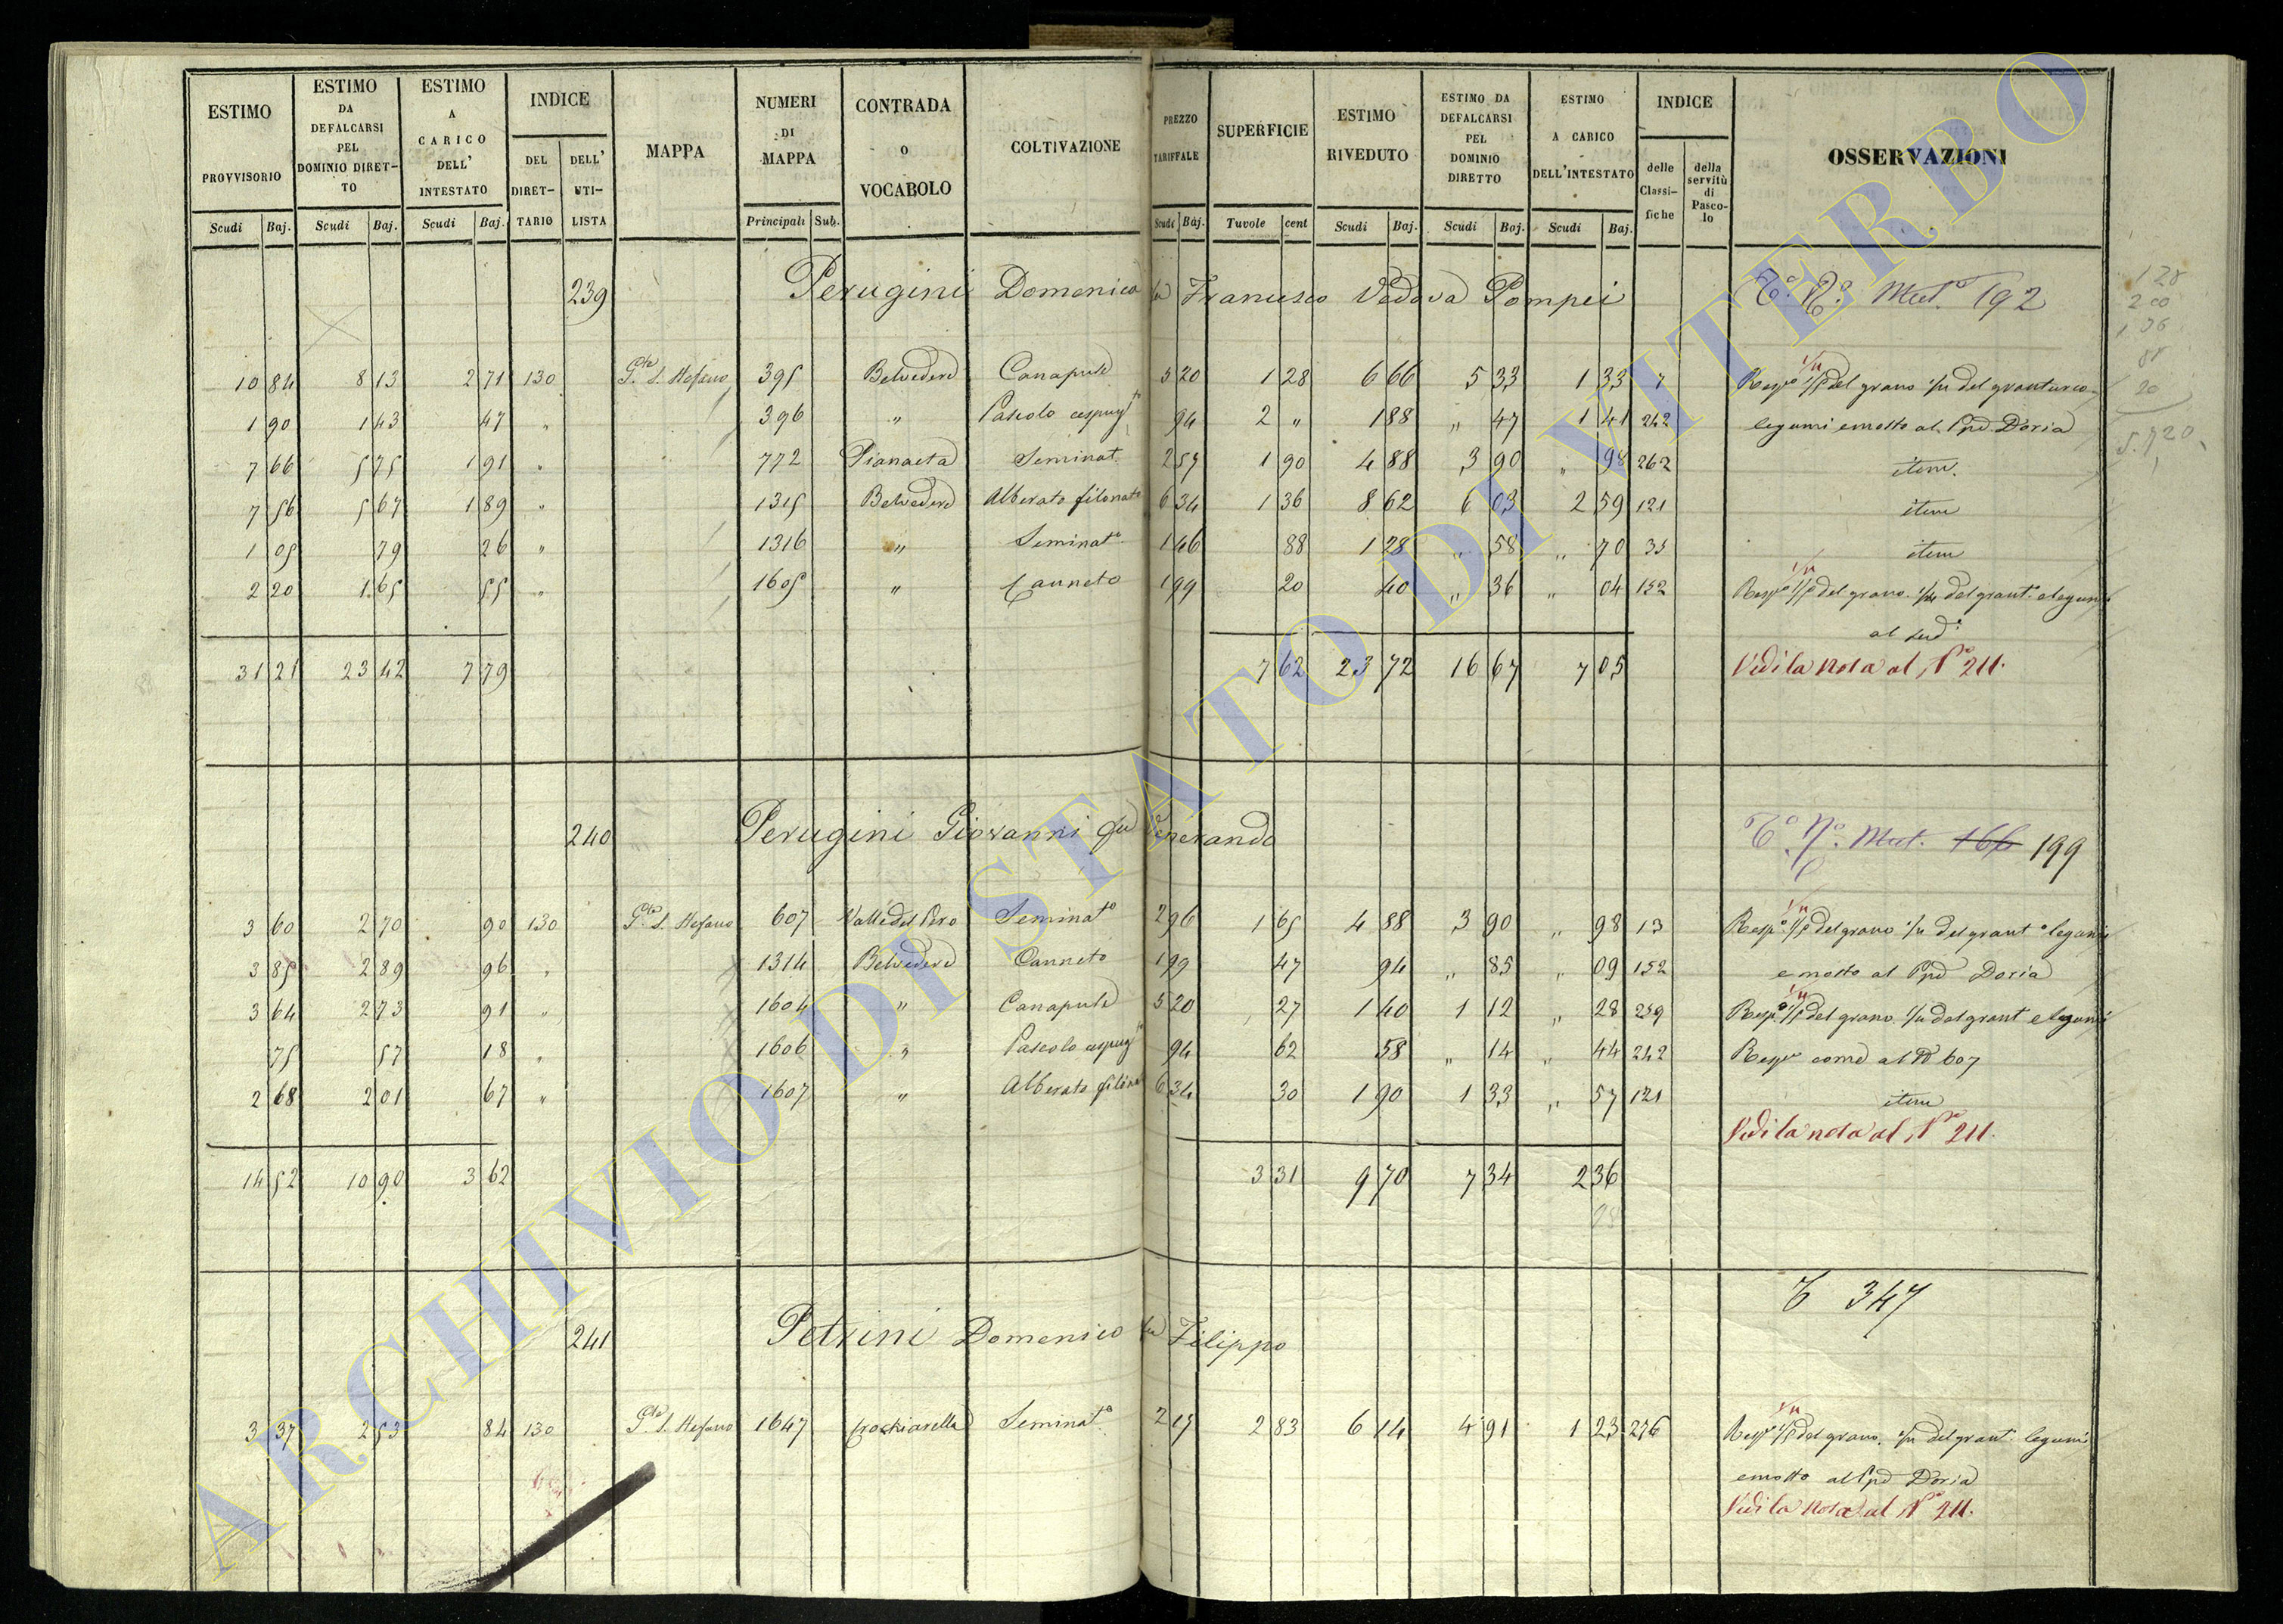 ESTIMO PROVVISORIO | ESTIMO DA DEFALCARSI PEL DOMINIO DIRET-TO | ESTIMO A CARICO DELL' INTESTATO | INDICE | MAPPA | NUMERI DI MAPPA | CONTRADA O VOCABOLO | COLTIVAZIONE | PREZZO TARIFFALE | SUPERFICIE | ESTIMO RIVEDUTO | ESTIMO DA DEFALCARSI PEL DOMINIO DIRETTO | ESTIMO A CARICO DELL'INTESTATO | INDICE | OSSERVAZIONI
DEL DIRET-TARIO | DELL' UTI-LISTA | delle Classi-fiche | della servitù di Pasco-lo
Scudi | Baj. | Scudi | Baj. | Scudi | Baj. | Principali | Sub. | Scudi | Baj. | Tavole | cent | Scudi | Baj. | Scudi | Baj. | Scudi | Baj.
239 Perugini Domenica fu Francesco Vedova Pompei Mut. 192
10 84 | 8 13 | 2 71 | 130 | P.te S. Stefano | 395 | Belvedere | Canapule | 5 20 | 1 28 | 6 66 | 5 33 | 1 33 | 7 | del grano del granturco
1 90 | 1 43 | 47 | " | 396 | " | Pascolo cespug | 94 | 2 " | 1 88 | " 47 | 1 41 | 242 | legumi e mosto al Doria
7 66 | 5 75 | 1 91 | " | 772 | Pianaeta | Seminat. | 2 57 | 1 90 | 4 88 | 3 90 | " 98 | 262 | item.
7 56 | 5 67 | 1 89 | " | 1315 | Belvedere | Alberato filonato | 6 34 | 1 36 | 8 62 | 6 03 | 2 59 | 121 | item
1 05 | 79 | 26 | " | 1316 | " | Seminat.o | 1 46 | 88 | 1 28 | " 58 | " 70 | 35 | item
2 20 | 1 65 | 55 | " | 1605 | " | Canneto | 1 99 | 20 | 40 | " 36 | " 04 | 152 | del grano del grant. e legumi
al sud.o
31 21 | 23 42 | 7 79 | 7 62 | 23 72 | 16 67 | 7 05 | Vedi la nota al N.o 211.
128
200
136
88
20
240 Perugini Giovanni fu Venerando Mut. 166 199
3 60 | 2 70 | 90 | 130 | P.te S. Stefano | 607 | Valle del Pero | Seminat.o | 2 96 | 1 65 | 4 88 | 3 90 | " 98 | 13 | del grano del grant.o legumi
3 85 | 2 89 | 96 | " | 1314 | Belvedere | Canneto | 1 99 | 47 | 94 | " 85 | " 09 | 152 | e mosto al Doria
3 64 | 2 73 | 91 | " | 1604 | " | Canapule | 5 20 | 27 | 1 40 | 1 12 | " 28 | 259 | del grano del grant e legumi
75 | 57 | 18 | " | 1606 | " | Pascolo cespug | 94 | 62 | 58 | " 14 | " 44 | 242 | come al N 607
2 68 | 2 01 | 67 | " | 1607 | " | Alberato filonat | 6 34 | 30 | 1 90 | 1 33 | " 57 | 121 | item
Vedi la nota al N.o 211.
14 52 | 10 90 | 3 62 | 3 31 | 9 70 | 7 34 | 2 36
347
241 Petrini Domenico fu Filippo
3 37 | 2 53 | 84 | 130 | P.te S. Stefano | 1647 | Crochiarella | Seminat.o | 2 17 | 2 83 | 6 14 | 4 91 | 1 23 | 276 | del grano del grant. legumi
e mosto al Doria
Vedi la nota al N.o 211.
ARCHIVIO DI STATO DI VITERBO